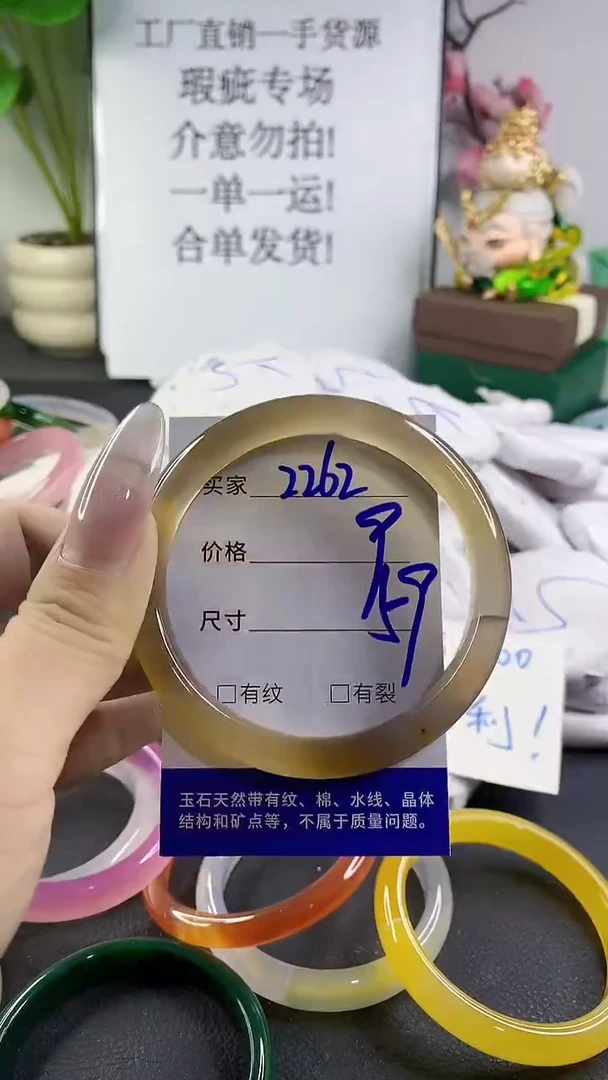 工厂直销一手货源
瑕疵专场
介意勿拍!
一单一运!
合单发货!
买家 2262
价格
尺寸 59
□有纹 □有裂
玉石天然带有纹、棉、水线、晶体
结构和矿点等，不属于质量问题。
00
利!